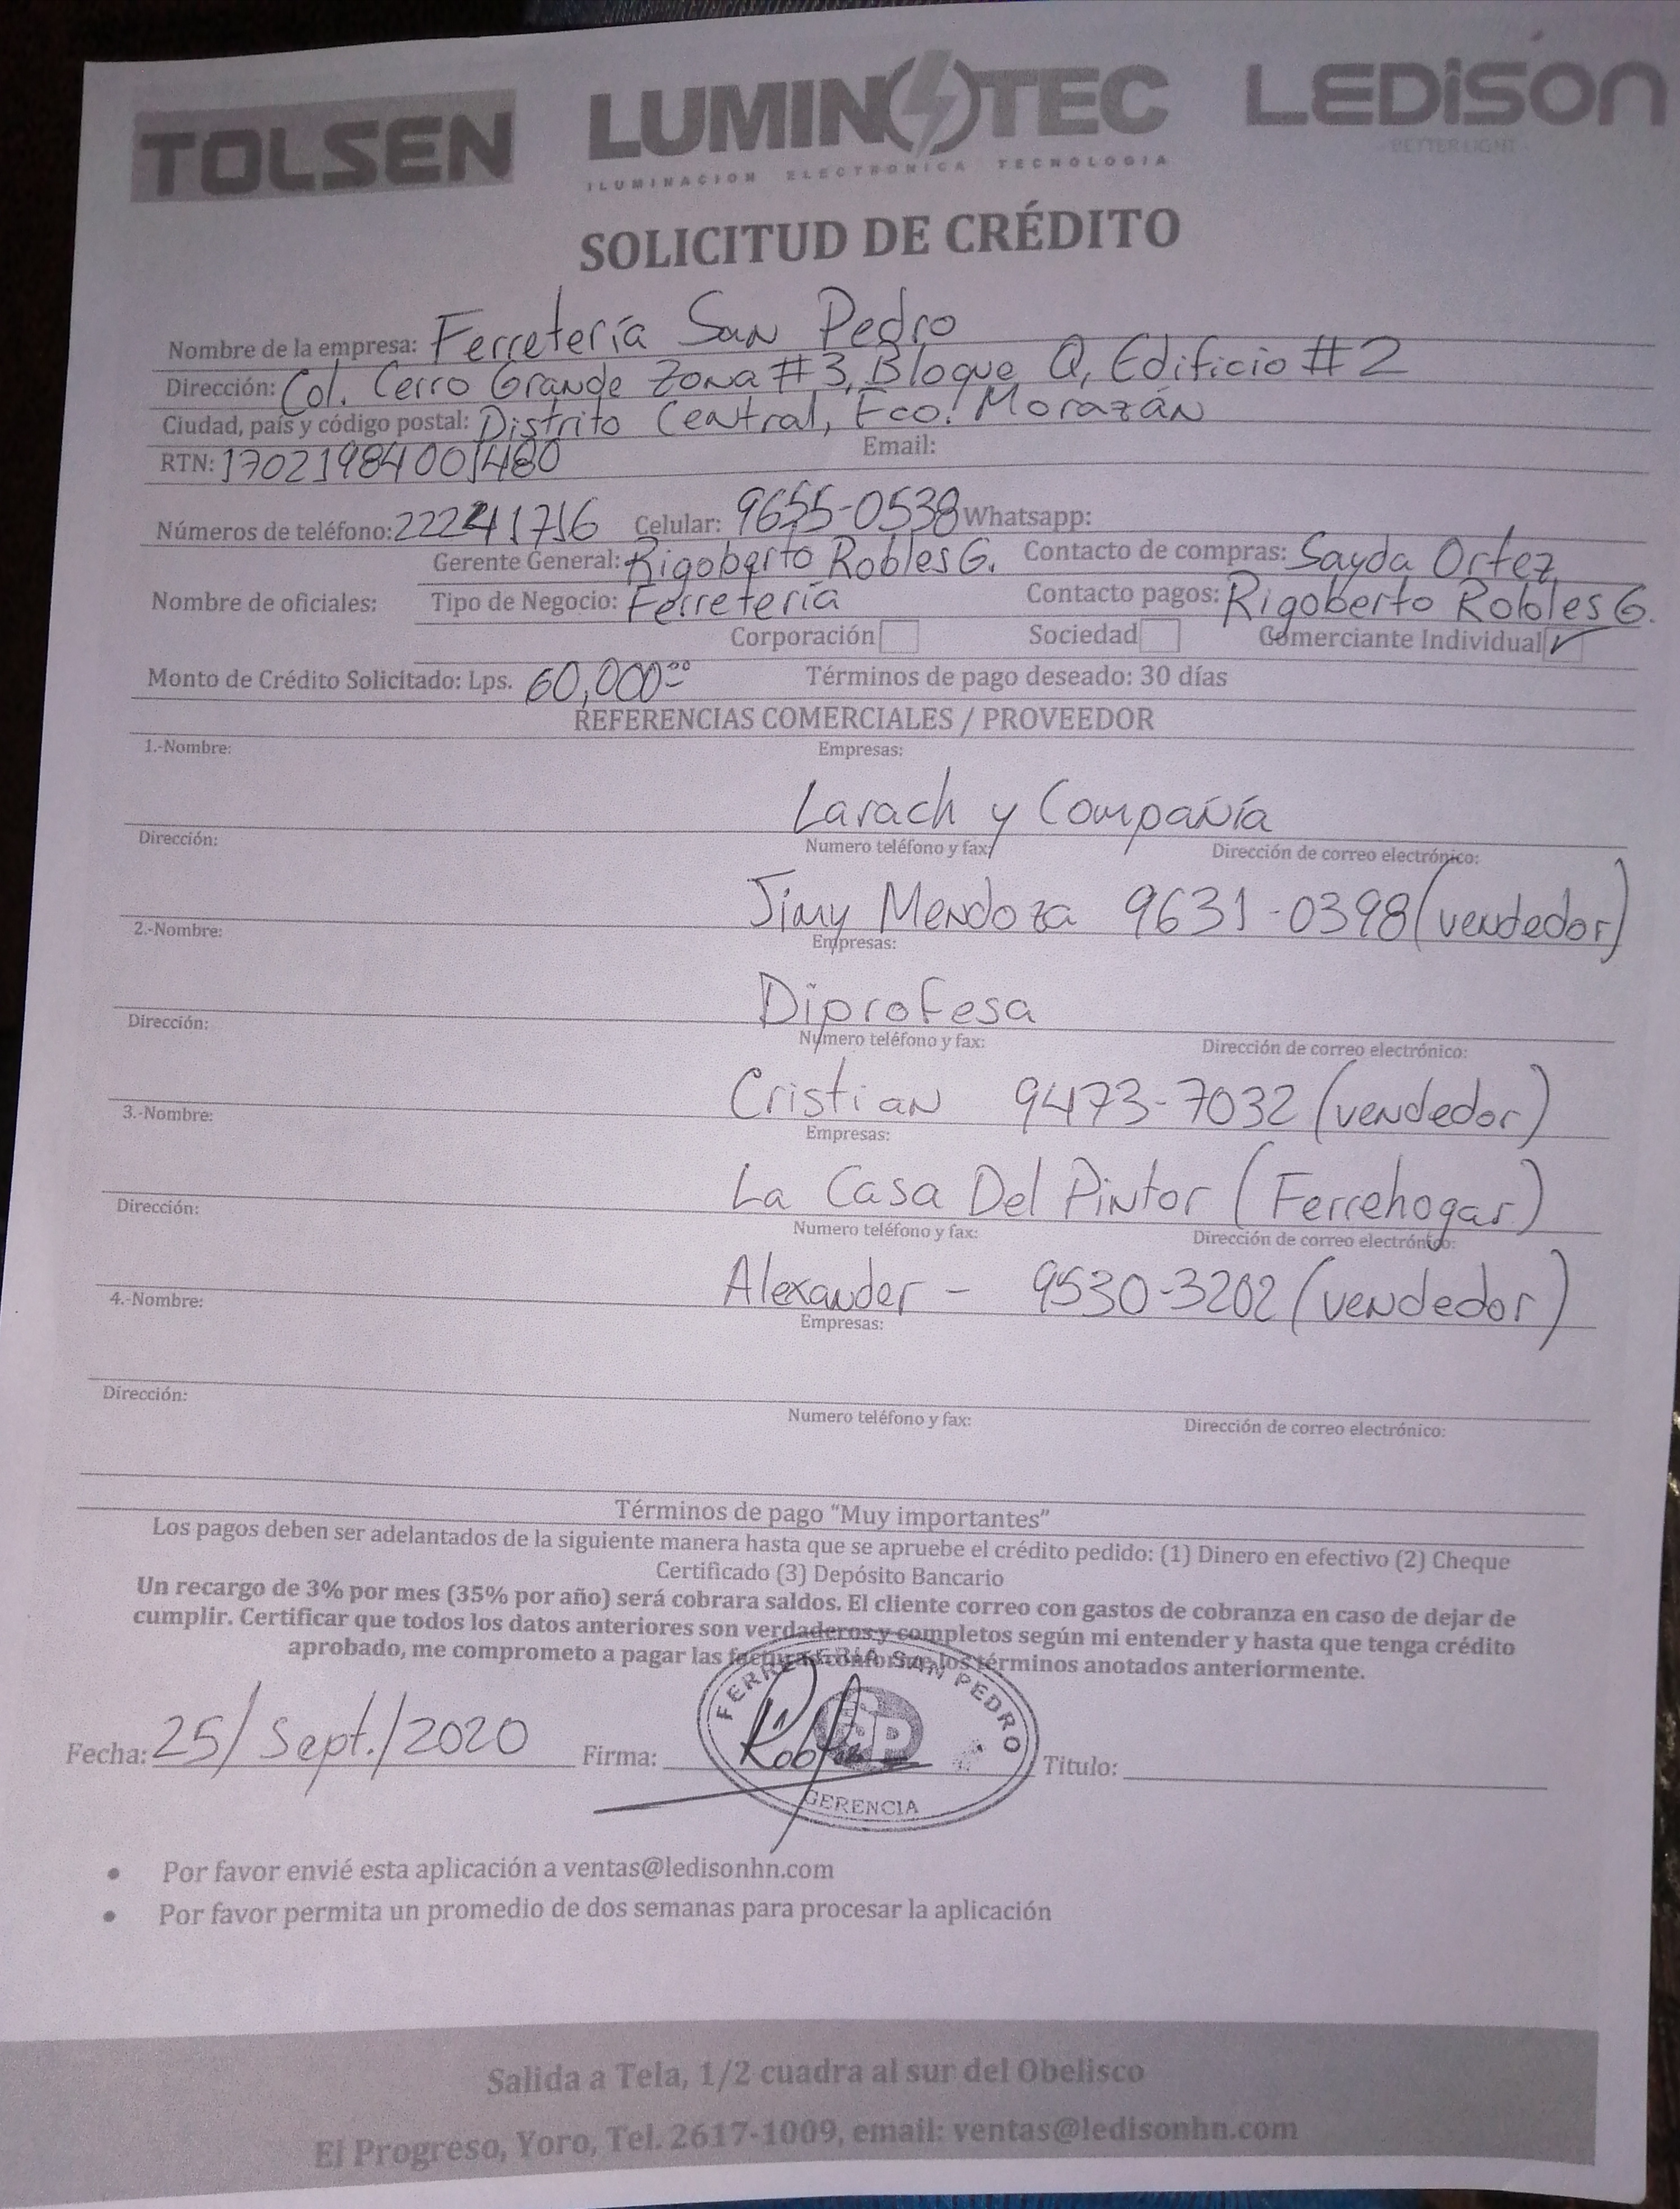 TOLSEN LUMINOTEC LEDISON
ILUMINACION ELECTRONICA TECNOLOGIA BETTER LIGHT
SOLICITUD DE CRÉDITO
Nombre de la empresa: Ferretería San Pedro
Dirección: Col. Cerro Grande Zona #3, Bloque Q, Edificio #2
Ciudad, país y código postal: Distrito Central, Fco. Morazán
RTN: 17021984001480 Email:
Números de teléfono: 22241716 Celular: 9655-0538 Whatsapp:
Gerente General: Rigoberto Robles G. Contacto de compras: Sayda Ortez
Nombre de oficiales: Tipo de Negocio: Ferretería Contacto pagos: Rigoberto Robles G.
Corporación Sociedad Comerciante Individual ✓
Monto de Crédito Solicitado: Lps. 60,000.00 Términos de pago deseado: 30 días
REFERENCIAS COMERCIALES / PROVEEDOR
1.-Nombre: Empresas:
Larach y Compañía
Dirección: Numero teléfono y fax: Dirección de correo electrónico:
Jimy Mendoza 9631-0398 (vendedor)
2.-Nombre: Empresas:
Diprofesa
Dirección: Numero teléfono y fax: Dirección de correo electrónico:
Cristian 9473-7032 (vendedor)
3.-Nombre: Empresas:
La Casa Del Pintor (Ferrehogar)
Dirección: Numero teléfono y fax: Dirección de correo electrónico:
Alexander - 9530-3202 (vendedor)
4.-Nombre: Empresas:
Dirección: Numero teléfono y fax: Dirección de correo electrónico:
Términos de pago “Muy importantes”
Los pagos deben ser adelantados de la siguiente manera hasta que se apruebe el crédito pedido: (1) Dinero en efectivo (2) Cheque
Certificado (3) Depósito Bancario
Un recargo de 3% por mes (35% por año) será cobrara saldos. El cliente correo con gastos de cobranza en caso de dejar de
cumplir. Certificar que todos los datos anteriores son verdaderos y completos según mi entender y hasta que tenga crédito
aprobado, me comprometo a pagar las facturas conforme los términos anotados anteriormente.
FERRETERIA SAN PEDRO
Fecha: 25/Sept./2020 Firma: Titulo:
GERENCIA
• Por favor envié esta aplicación a ventas@ledisonhn.com
• Por favor permita un promedio de dos semanas para procesar la aplicación
Salida a Tela, 1/2 cuadra al sur del Obelisco
El Progreso, Yoro, Tel. 2617-1009, email: ventas@ledisonhn.com